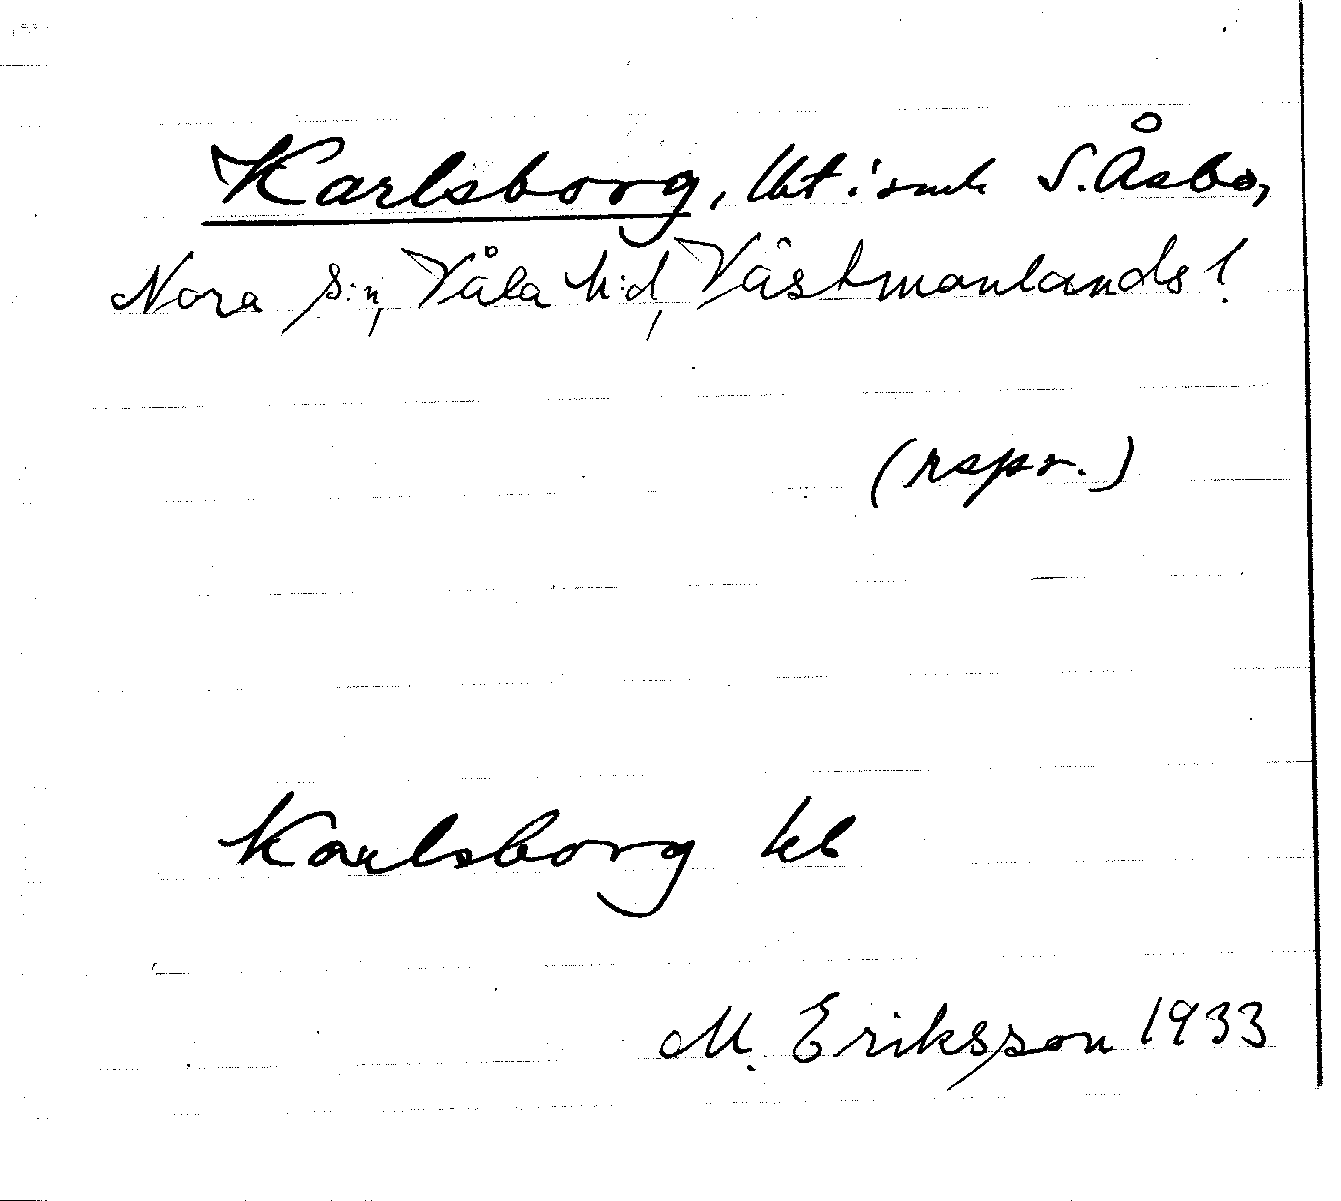 Karlsborg, lht i smh S. Åsbo,
Nora s:n, Våla h:d, Västmanlands l.
(rspr.)
Karlsborg kb
M. Eriksson 1933